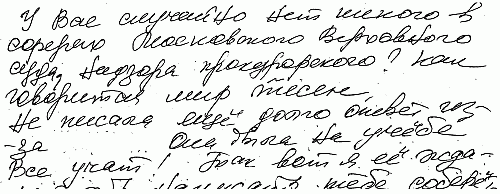 У Вас случайно нет никого в
сферею Московского Верховного
суда, надзора прокурорского? Как
говорится мир тесен.
Не писала ещё долго ответ из-
-за ... Она была на учёбе
Все учат! Так вот я её жда-
написать тебе